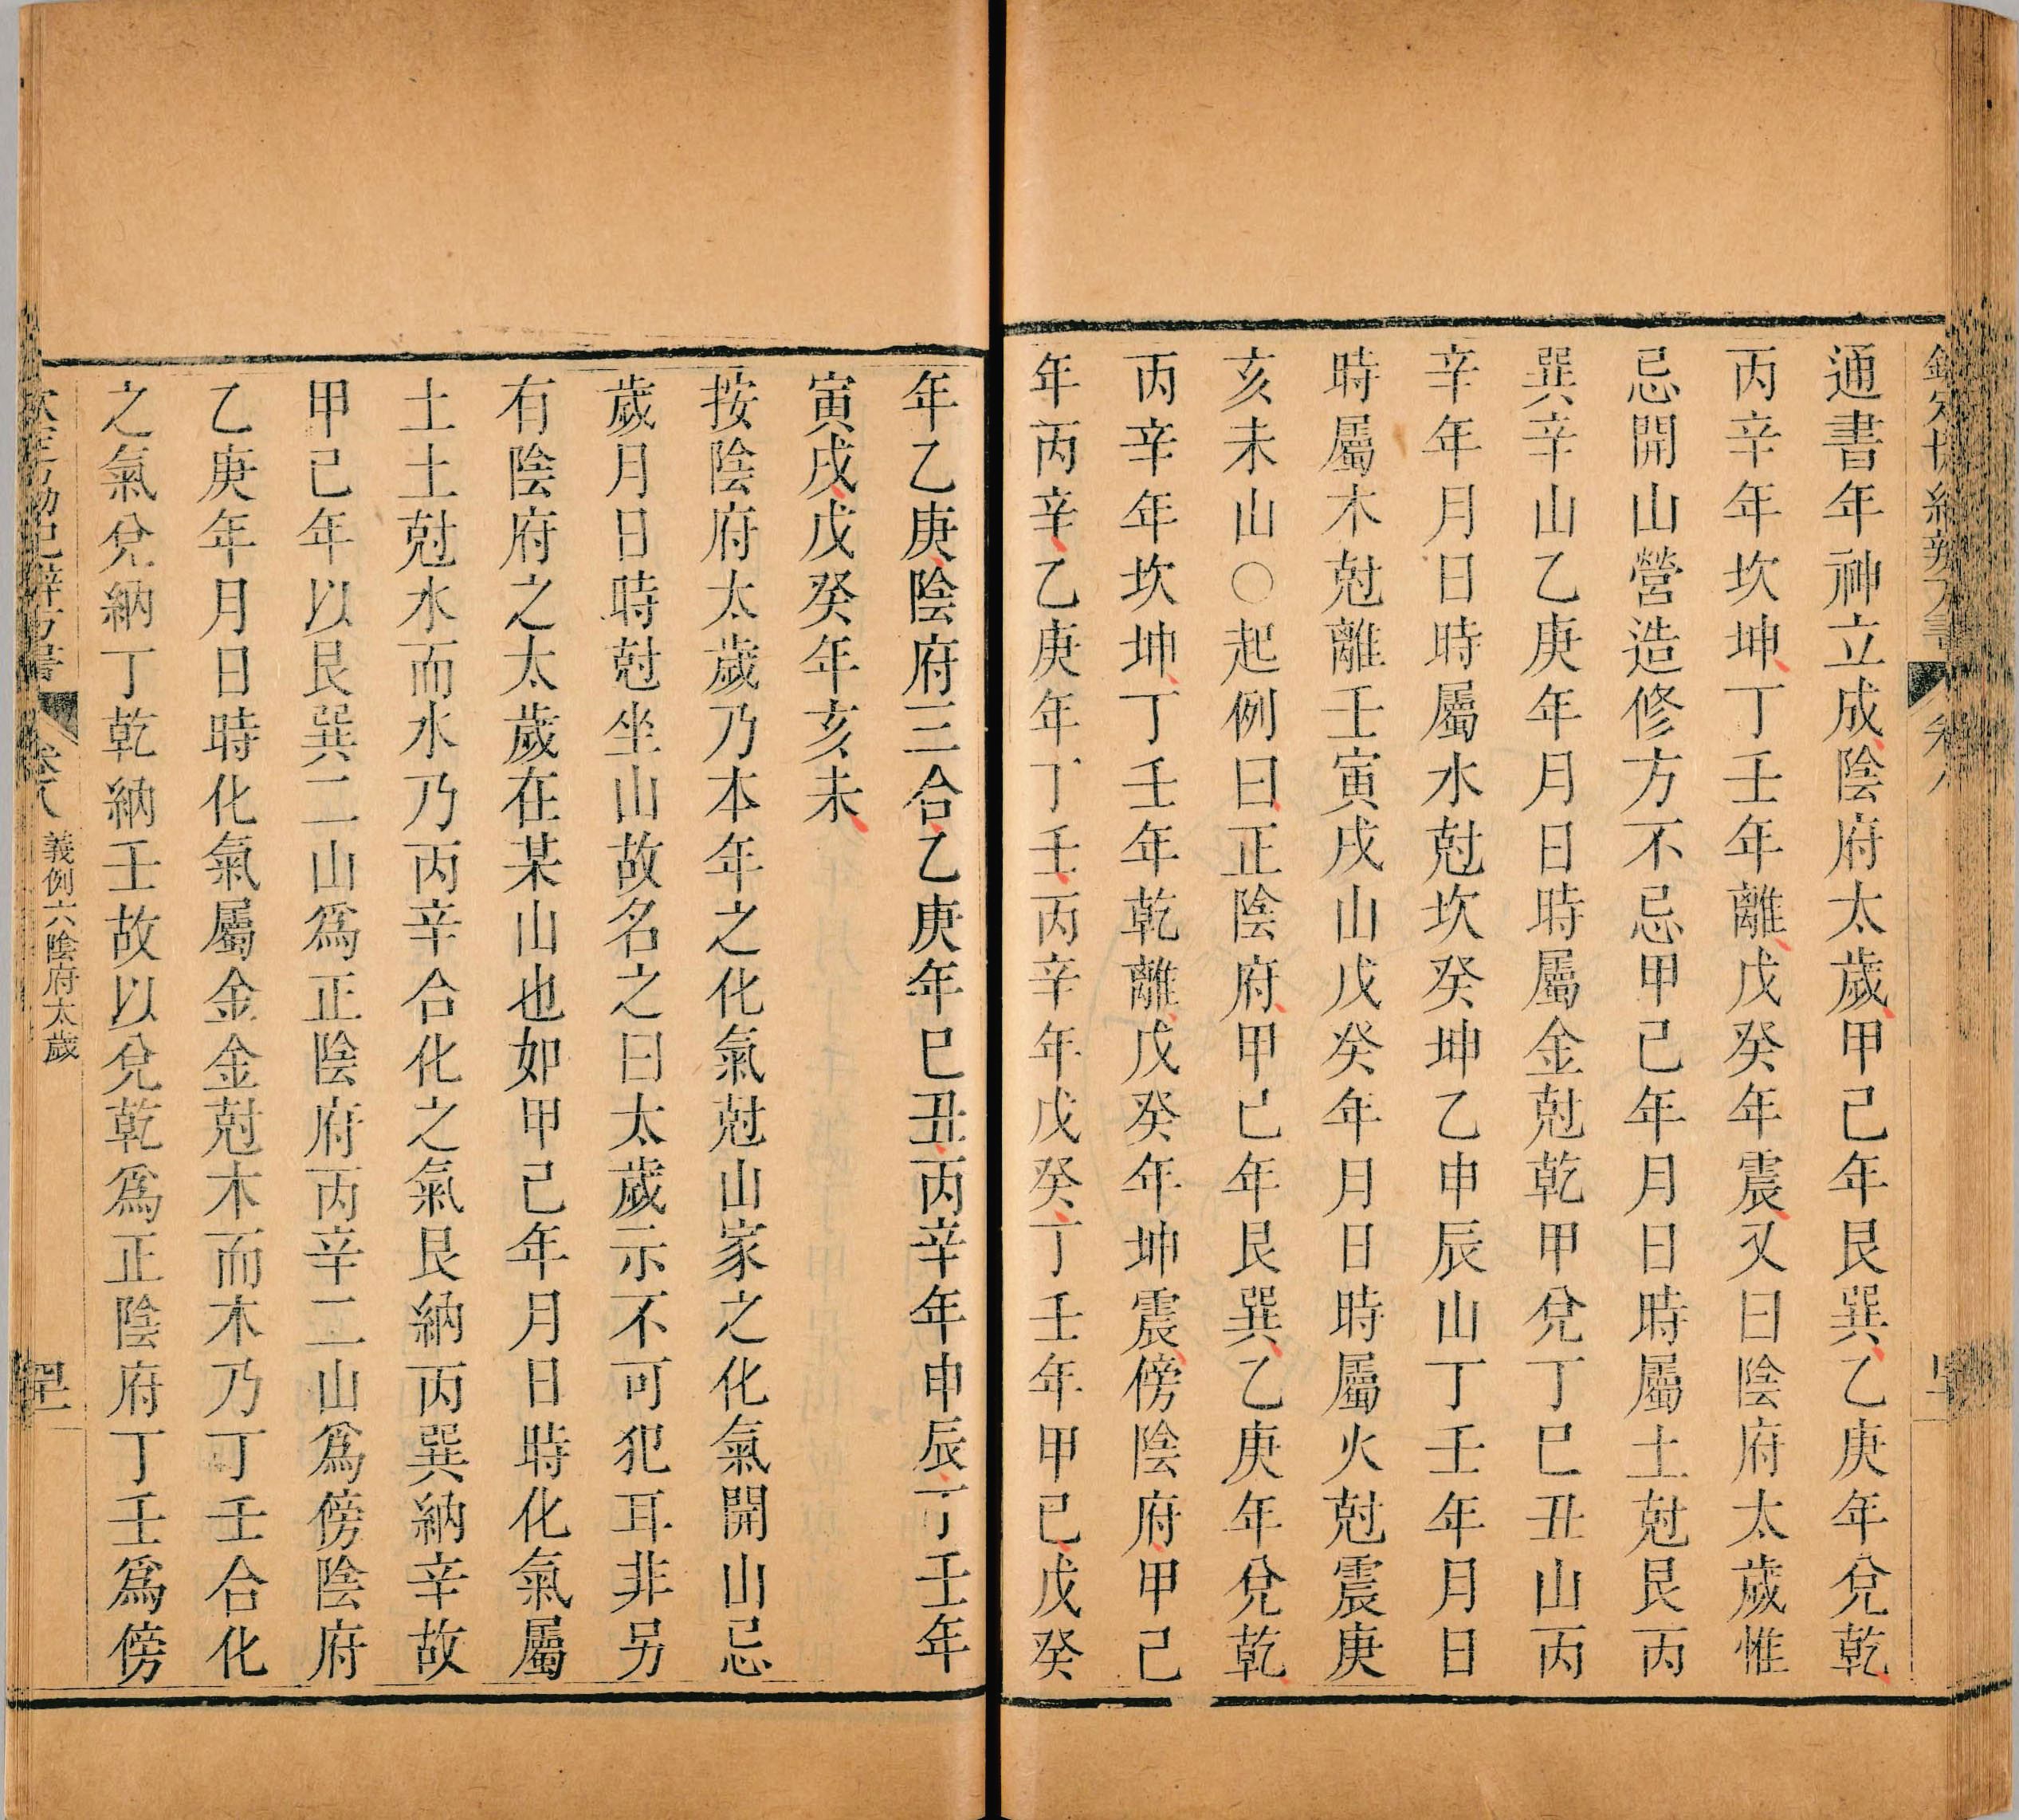 通書年神立成陰府太歲甲己年艮巽乙庚年兌乾
丙辛年坎坤丁壬年離戊癸年震又曰陰府太歲惟
忌開山營造修方不忌甲己年月日時屬土尅艮丙
巽辛山乙庚年月日時屬金尅乾甲兌丁巳丑山丙
辛年月日時屬水尅坎癸坤乙申辰山丁壬年月日
時屬木尅離壬寅戌山戊癸年月日時屬火尅震庚
亥未山○起例曰正陰府甲己年艮巽乙庚年兌乾
丙辛年坎坤丁壬年乾離戊癸年坤震傍陰府甲己
年丙辛乙庚年丁壬丙辛年戊癸丁壬年甲己戊癸
年乙庚陰府三合乙庚年巳丑丙辛年申辰丁壬年
寅戌戊癸年亥未
按陰府太歲乃本年之化氣尅山家之化氣開山忌
歲月日時尅坐山故名之曰太歲示不可犯耳非另
有陰府之太歲在某山也如甲己年月日時化氣屬
土土尅水而水乃丙辛合化之氣艮納丙巽納辛故
甲己年以艮巽二山爲正陰府丙辛二山爲傍陰府
乙庚年月日時化氣屬金金尅木而木乃丁壬合化
之氣兌納丁乾納壬故以兌乾爲正陰府丁壬爲傍
卷八
義例六陰府太歲